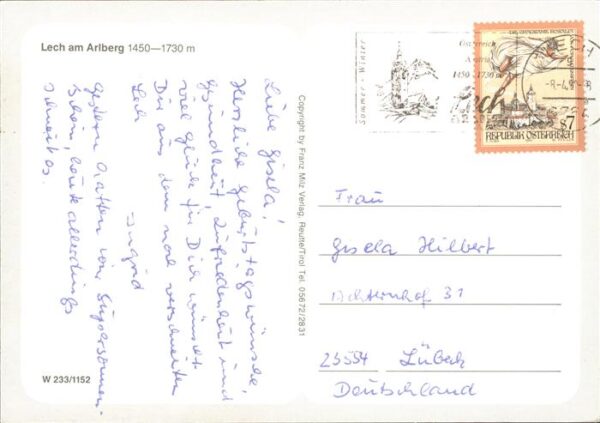 Lech am Arlberg 1450—1730 m
Liebe Gisela!
Herzliche Geburtstagswünsche,
Gesundheit, Zufriedenheit und
viel Glück für Dich wünscht
Dir aus dem noch verschneiten
Lech
Ingrid
Gestern hatten wir Supersonnen-
schein, heute allerdings
schneit es.
W 233/1152
Copyright by Franz Milz Verlag, Reutte/Tirol Tel. 05672/2831
Sommer - Winter
Österreich
Austria
1450 - 1730 m
Lech
LECH
S7
REPUBLIK ÖSTERREICH
Frau
Gisela Hilbert
Achternhof 31
23554 Lübeck
Deutschland